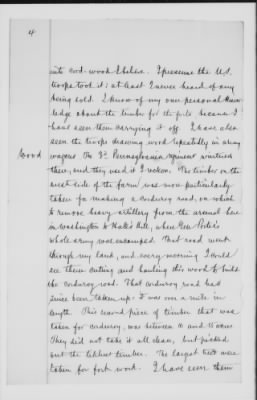 4
into cord-wood I believe. I presume the U.S.
troops took it; at least I never heard of any
being sold. I know of my own personal know-
ledge about the timber for the pits because I
have seen them carrying it off. I have also
seen the troops drawing wood repeatedly in army
Wood
wagons. The 3d. Pennsylvania regiment wintered
there, and they used it I reckon. The timber on the
west side of the farm was more particularly
taken for making a corduroy road, on which
to remove heavy artillery from the arsenal here
in Washington to Hall's Hill, when Gen. Porter's
whole army was encamped. That road went
through my land, and every morning I could
see them cutting and hauling this wood to build
the corduroy road. That corduroy road had
since been taken up. It was over a mile in
length. This second piece of timber that was
taken for corduroy, was between 10 and 15 acres.
They did not take it all clean, but picked
out the likliest timber. The largest trees were
taken for fort work. I have seen them